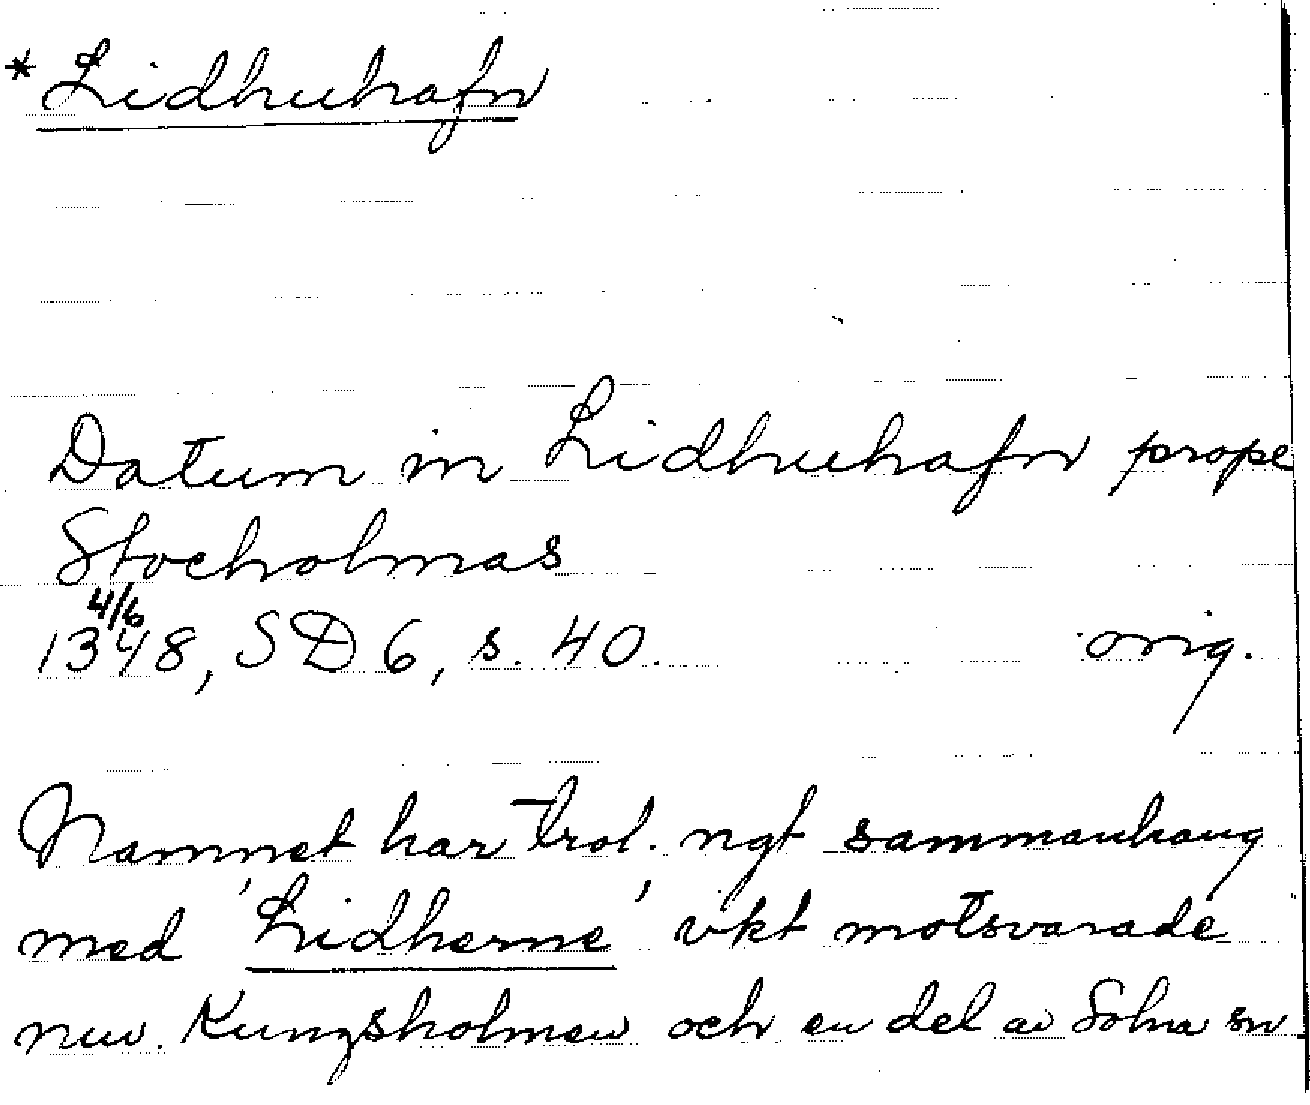 *Lidhuhafn
Datum in Lidhuhafn prope
Stocholmas
4/6
1348, SD 6, s. 40. orig.
Namnet har trol. ngt sammanhang
med 'Lidherne', vkt motsvarade
nuv. Kungsholmen och en del av Solna sn